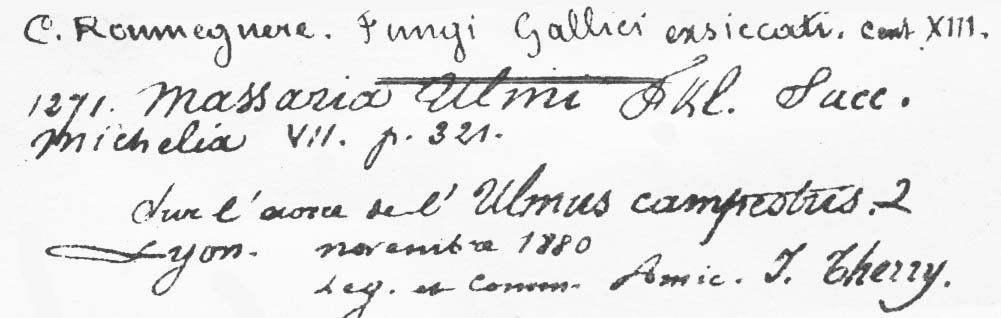 C. Roumeguere. Fungi Gallici exsiccati. Cent XIII.
1271. Massaria Ulmi Fkl. Sacc.
Michelia VII. p. 321.
Sur l'écorce de l'Ulmus campestris. 2
Lyon. novembre 1880
Leg. et Comm. Amic. J. Therry.